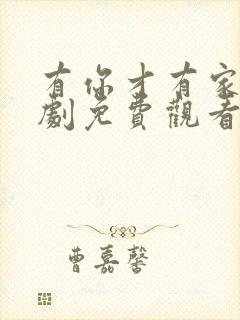 有你才有家
劇免費觀看
曹嘉馨